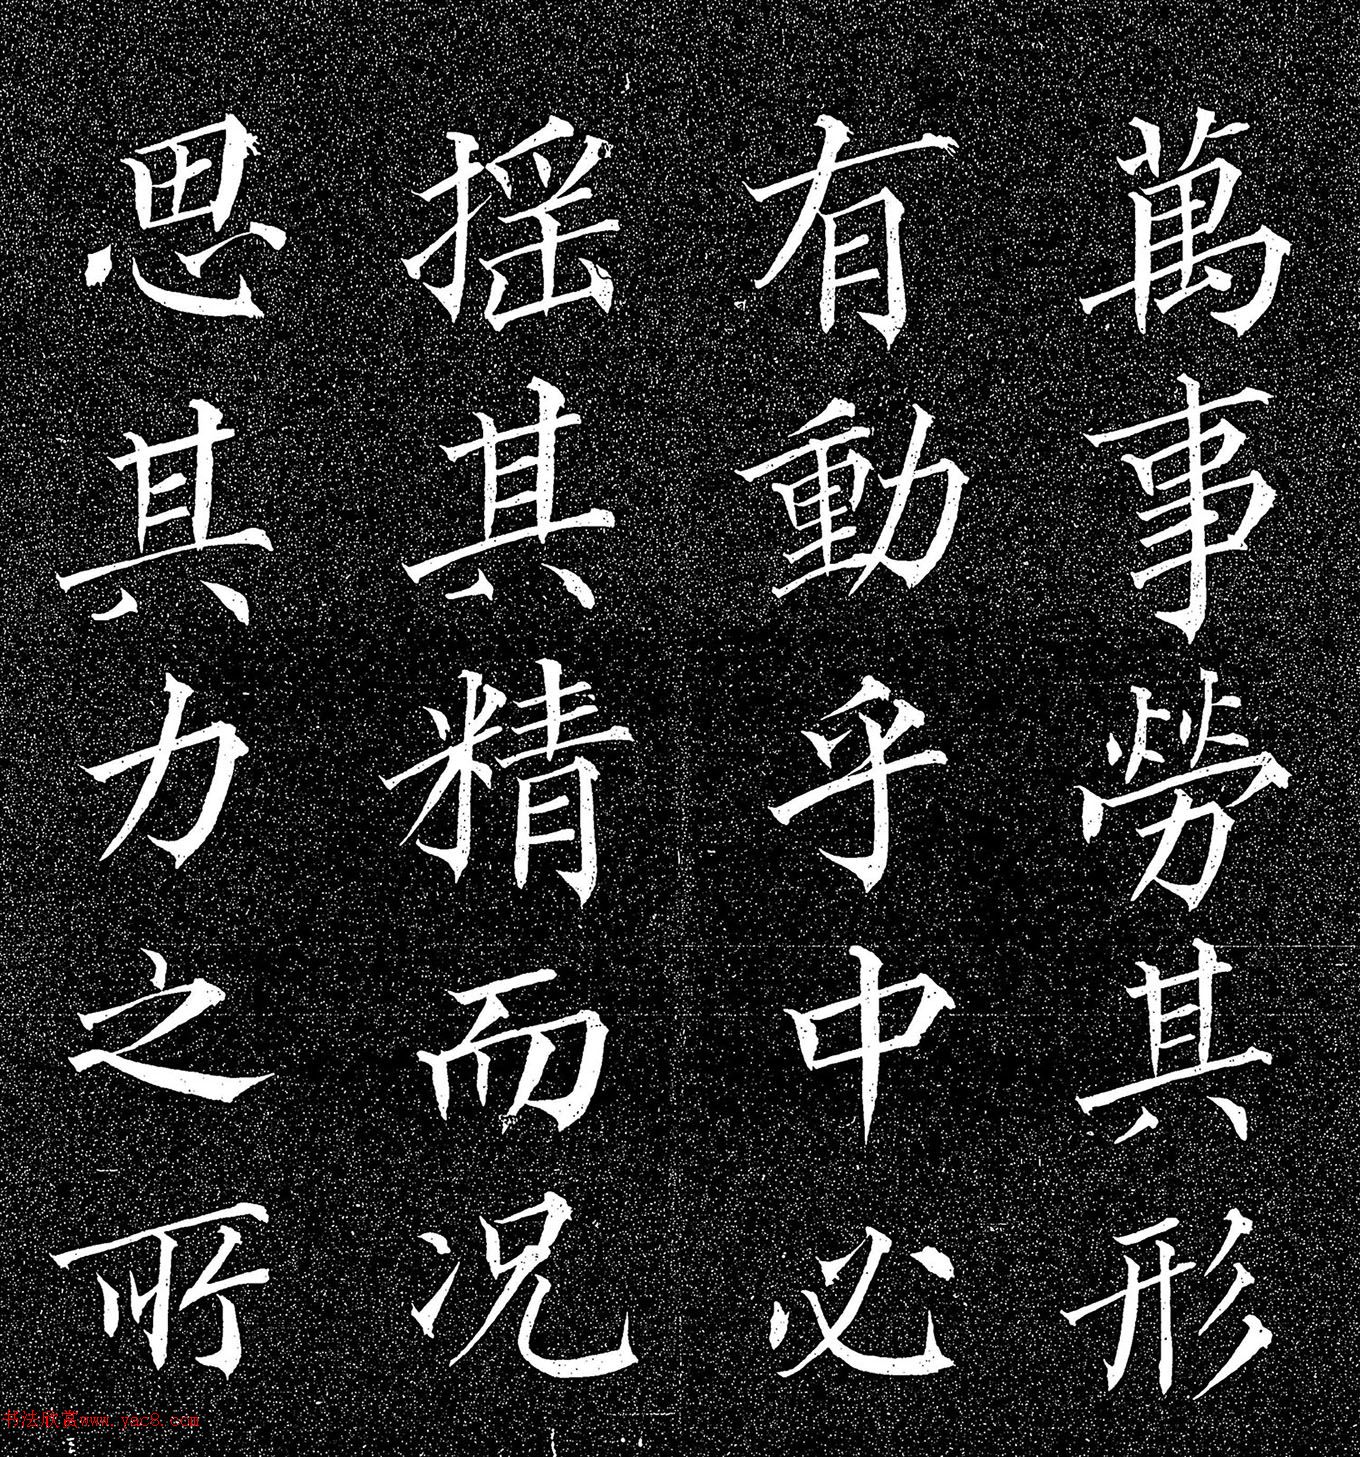 萬事勞其形
有動乎中必
摇其精而况
思其力之所
书法欣赏www.yac8.com